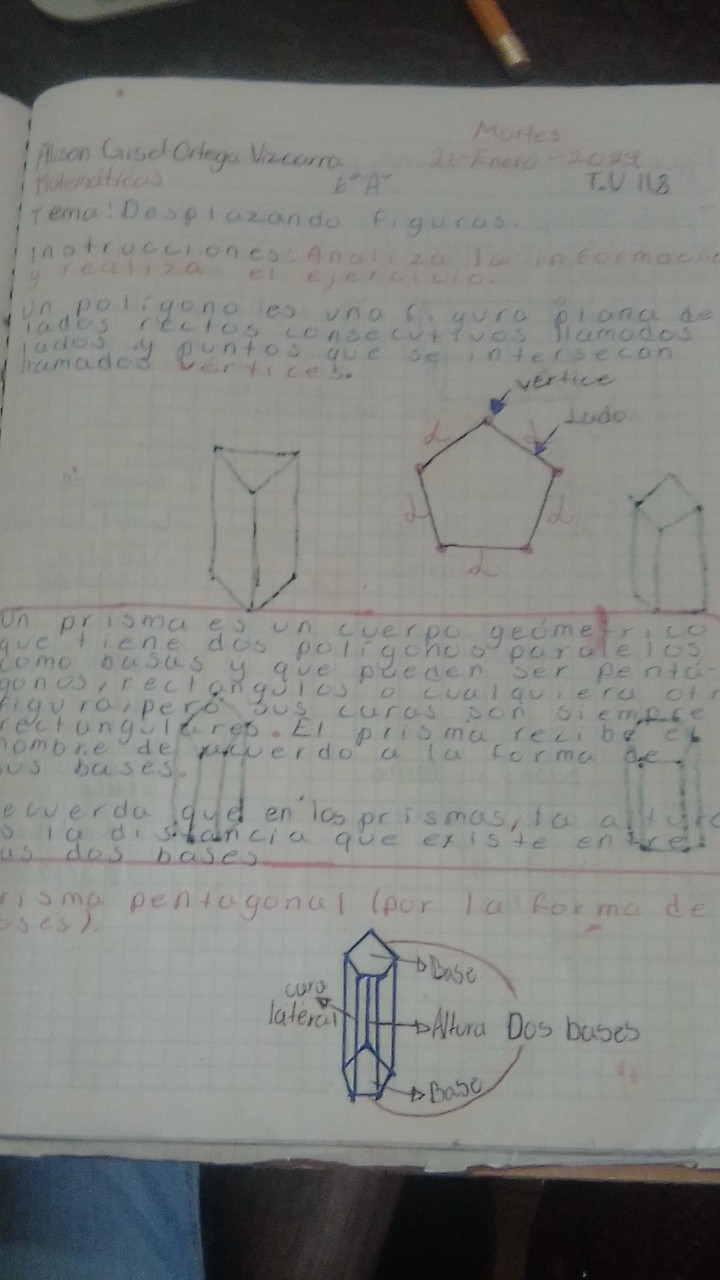 Martes
Alison Gisel Ortega Vizcarra
Matemáticas 6° "A" T.V 118
Tema: Desplazando figuras.
Instrucciones: Analiza la informació
y realiza el ejercicio.
Un polígono es una figura plana de
lados rectos consecutivos llamados
lados y puntos que se intersecan
llamados vértices.
vértice
Lado
L
L
L
L
L
Un prisma es un cuerpo geométrico
que tiene dos polígonos paralelos
como bases y que pueden ser penta-
gonos, rectangulos o cualquiera otr
figura, pero sus caras son siempre
rectangulares. El prisma recibe el
nombre de acuerdo a la forma de
sus bases.
ecuerda que en los prismas, la altura
s la distancia que existe entre
as dos bases
risma pentagonal (por la forma de
ses).
Base
cara
lateral
Altura
Dos bases
Base